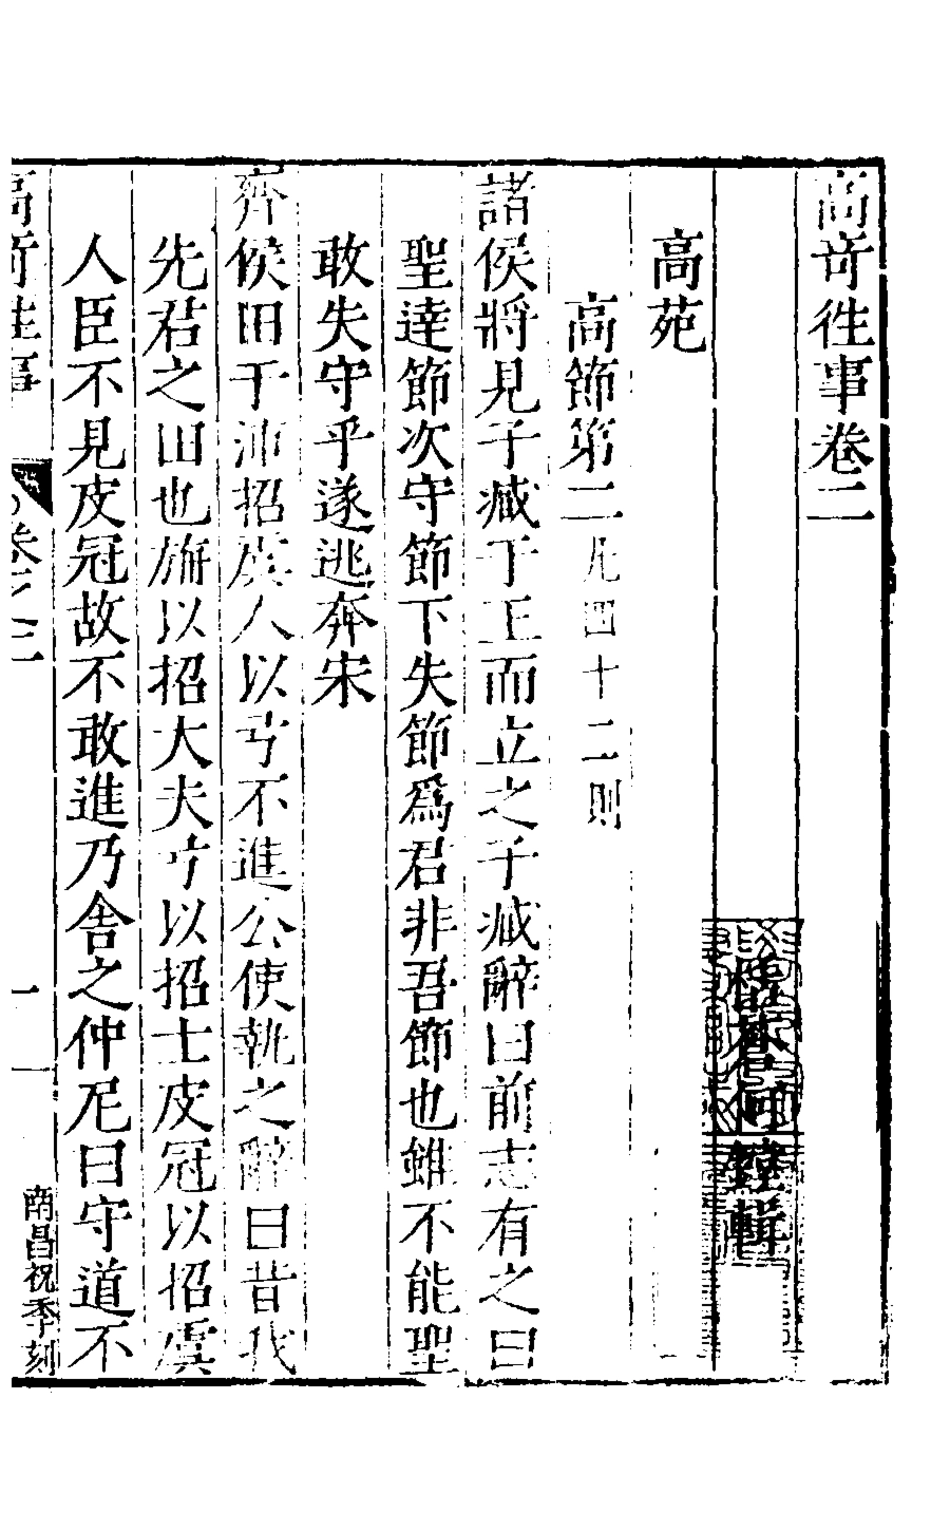 高奇徃事卷二
何鏜輯
高苑
高節第二凡四十二則
諸侯將見子臧于王而立之子臧辭曰前志有之曰
聖達節次守節下失節爲君非吾節也雖不能聖
敢失守乎遂逃奔宋
齊侯田于沛招虞人以弓不進公使執之辭曰昔我
先君之田也旃以招大夫弓以招士皮冠以招虞
人臣不見皮冠故不敢進乃舍之仲尼曰守道不
高奇徃事
卷之二
一
南昌祝季刻